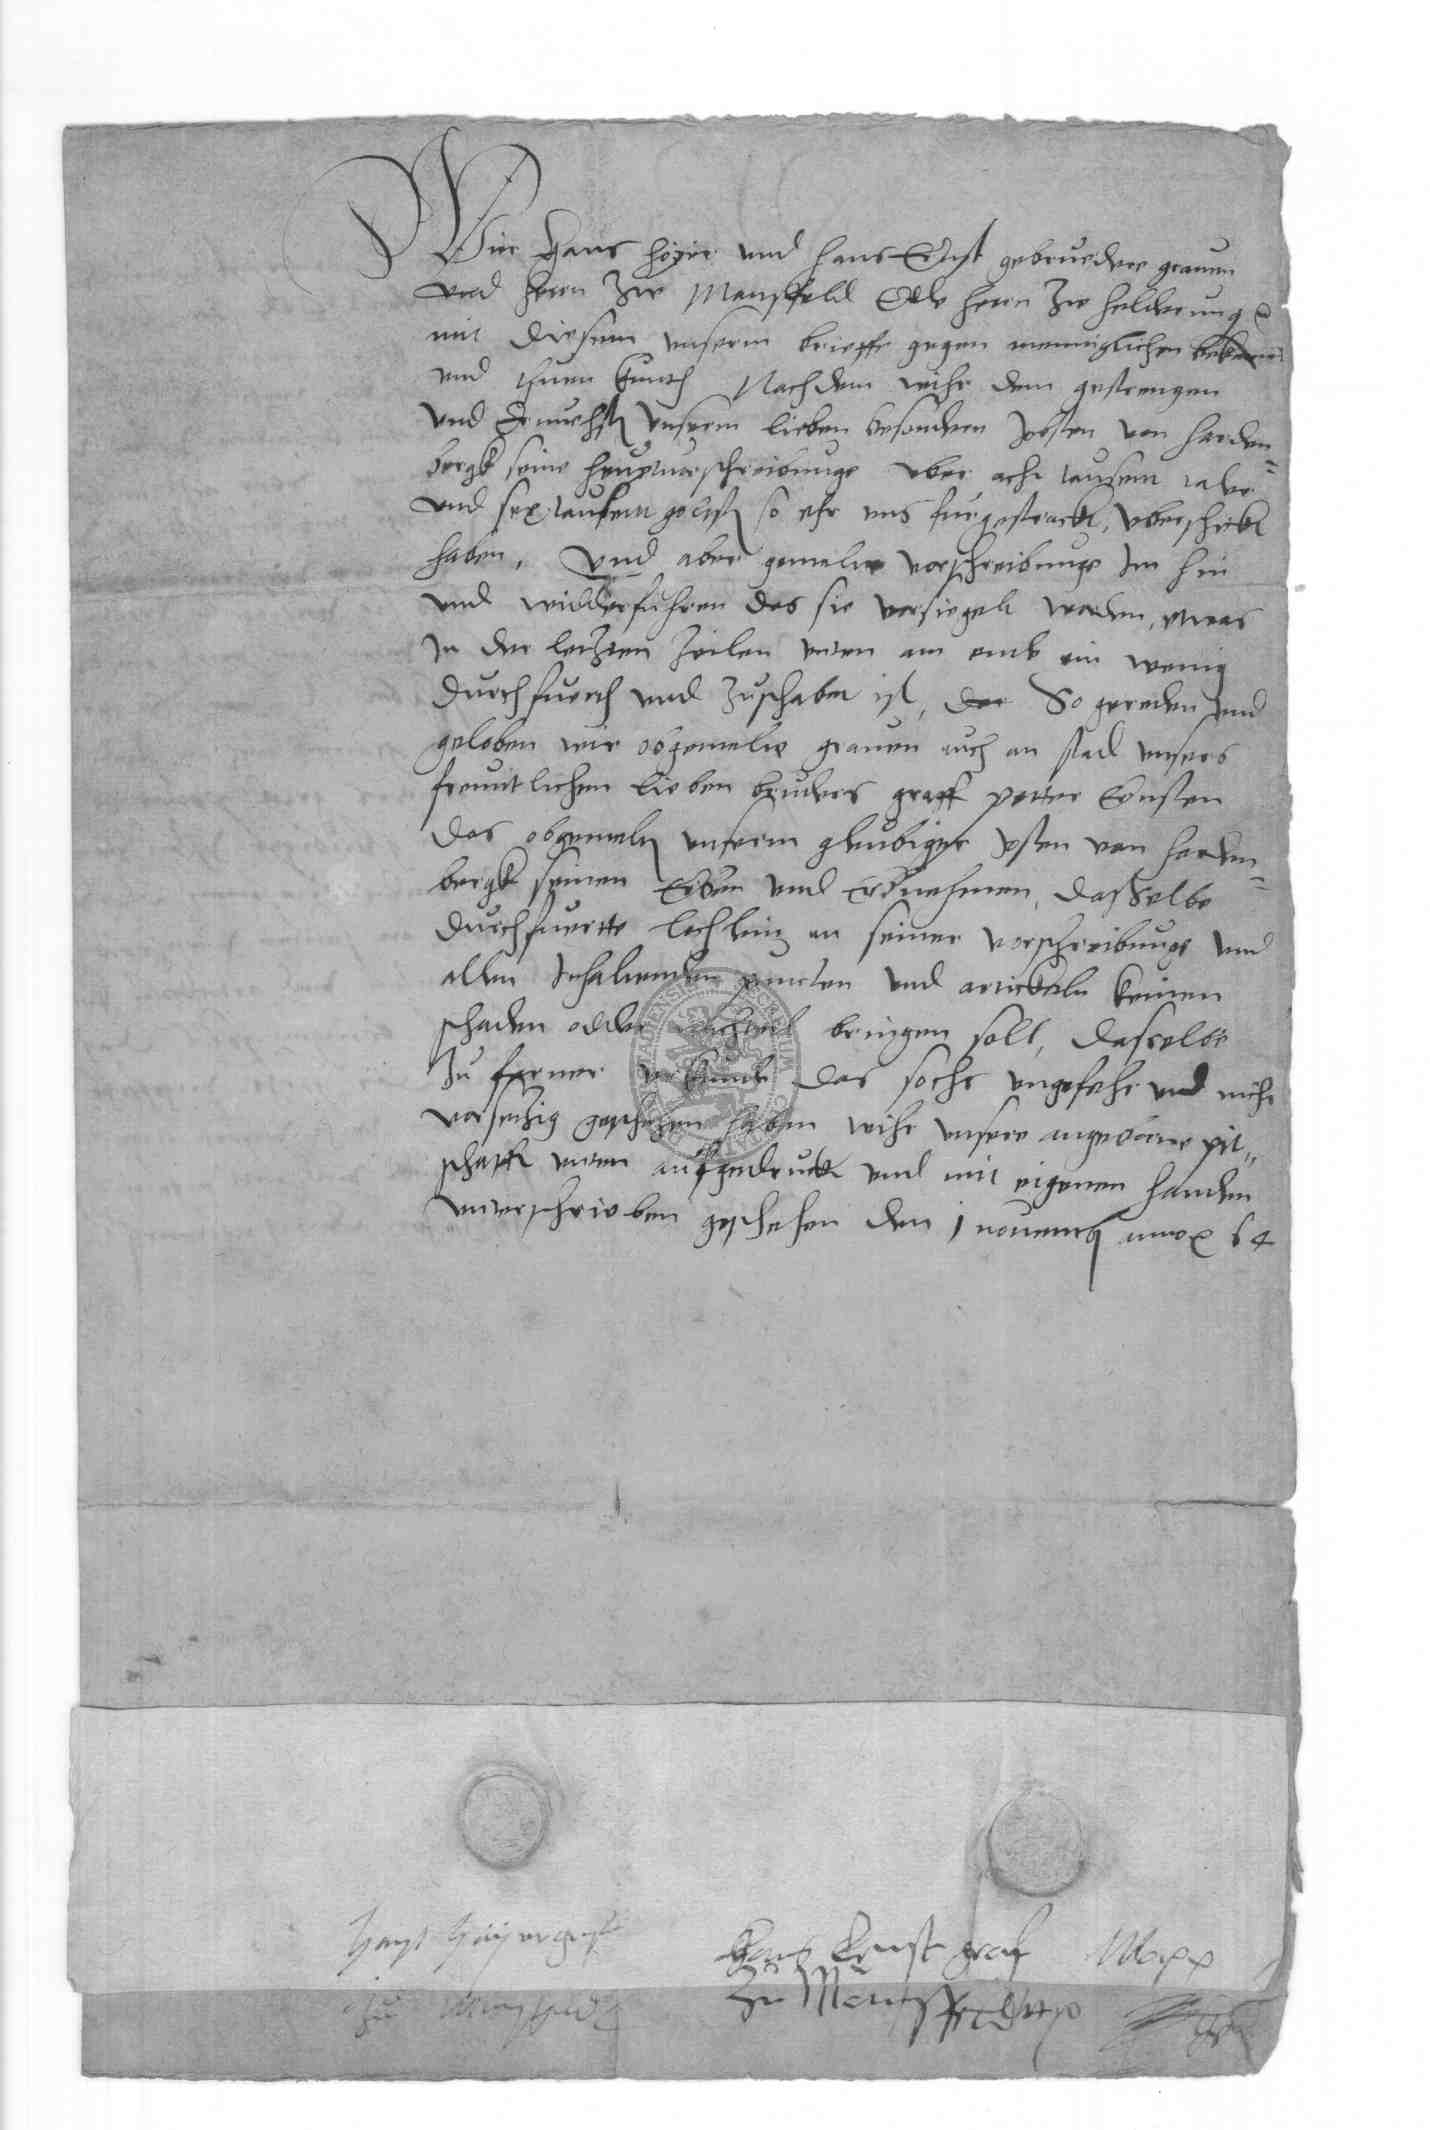 Wir Hans hoyer und hans Ernst gebrueder grauen
und herrn zw Manssfeld Edle herrn zw helderung
mit diesem unserm brieffe gegen menniglichen bekennen
und thuen kunth Nachdem wihr dem gestrengen
und Ernuehsten unserm lieben besondern Josten von harden-
bergk seine heuptvorschreibunge uber acht tausent taler
und sex tausent goltfl so ehr uns furgestrackt, uberschickt
haben, Und aber gemelte vorschreibunge Im hin
und widderfuhren das sie vorsiegelt worden, etwas
In der letzten zeilen unten am ende ein wenig
durchfuert und zuschaben ist, So gereden und
geloben wir obgemelte grauen auch an stad unsers
freuntlichen lieben bruders graff petter Ernsten
das obgemelten unserm gleubiger Josten von harden-
bergk seinen Erben und Erbnehmen, dasselbe
durchfuertte lochlein an seiner vorschreibunge und
allen Inhaltenden puncten und artickeln keinen
schaden odder nachteil bringen soll, dasselbe
zu ferner urkunde das sochs ungefehr und nicht
vorsetzig geschehen haben wihr unsere angeborne pit-
schafft unten auffgedruckt und mit eigenen handen
unterschrieben geschehen den 1 novemb anno 64
Hans Hoyer graff
zu Mansfeld
Hans Ernst graf
zu Mansfeld